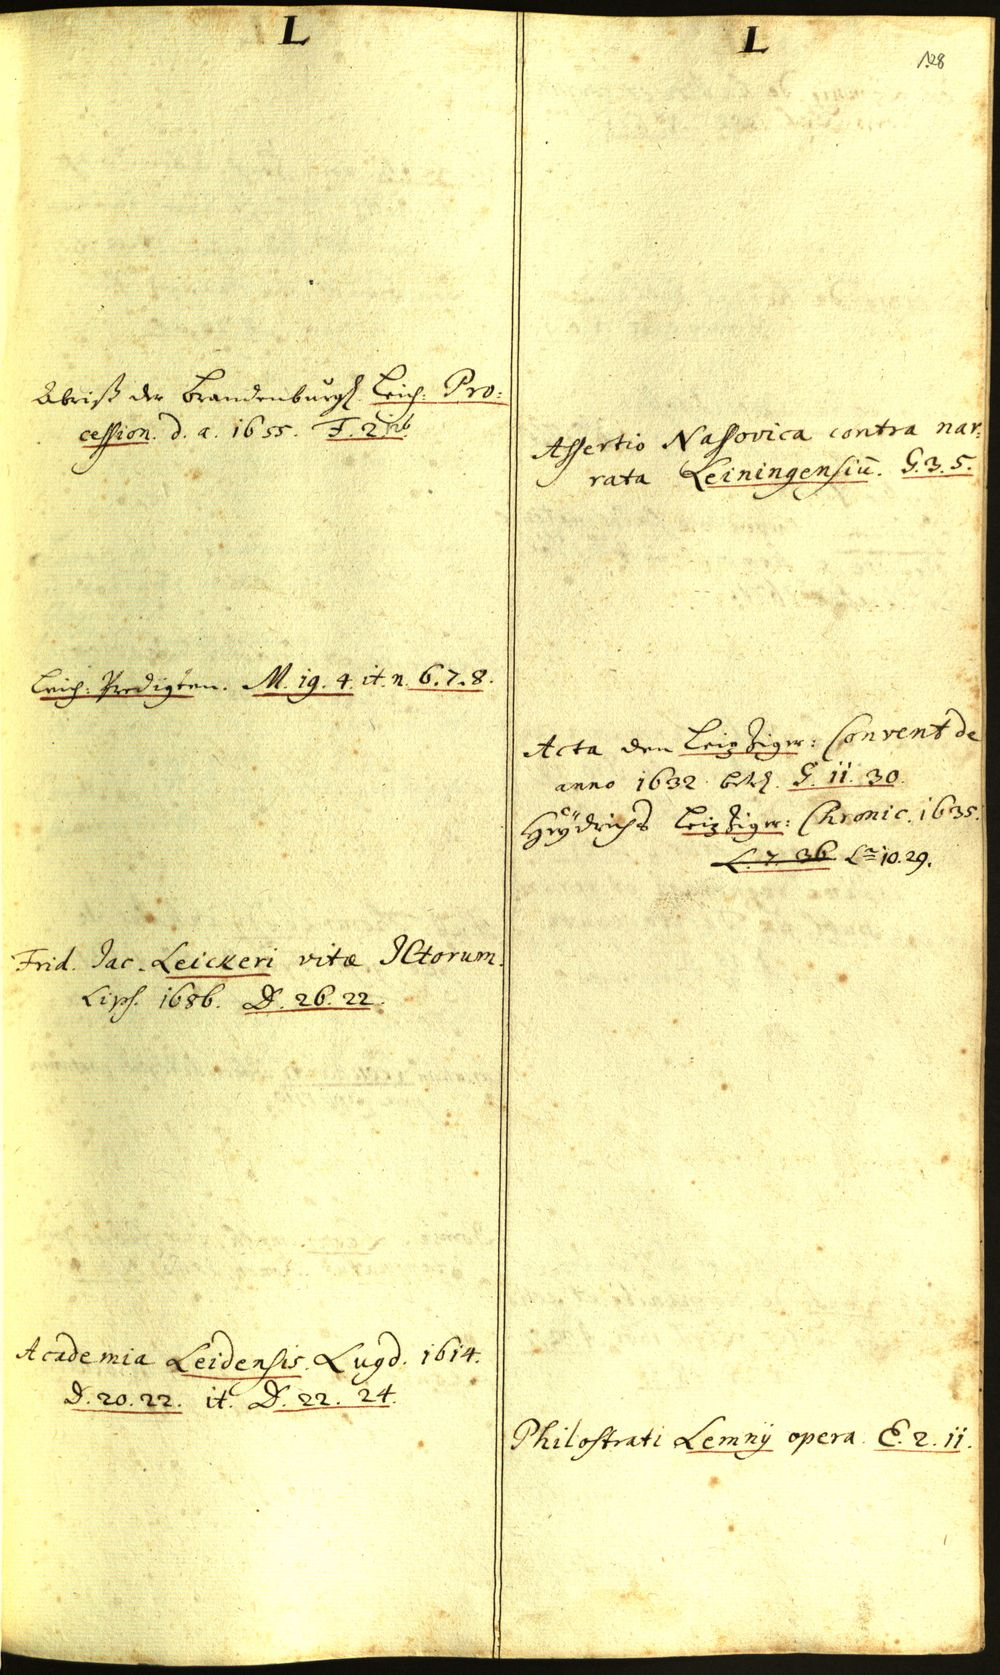 L
Abriß der Brandenburg. Leich: Pro:
cession. d. a. 1655. F. 2.
Leich: Predigten. M. 19. 4. it. n. 6. 7. 8.
Frid. Jac. Leickeri vitæ JCtorum.
Lips. 1686. D. 26. 22.
Academia Leidensis. Lugd. 1614.
D. 20. 22. it. D. 22. 24.
L
128
Assertio Nassovica contra nar:
rata Leiningensiū. G. 3. 5.
Acta den Leipziger: Convent de
anno 1632. G. 11. 30.
Heÿdrichs Leipziger: Chronic. 1635.
L. 7. 36. La 10. 29.
Philostrati Lemnÿ opera. E. 2. 11.